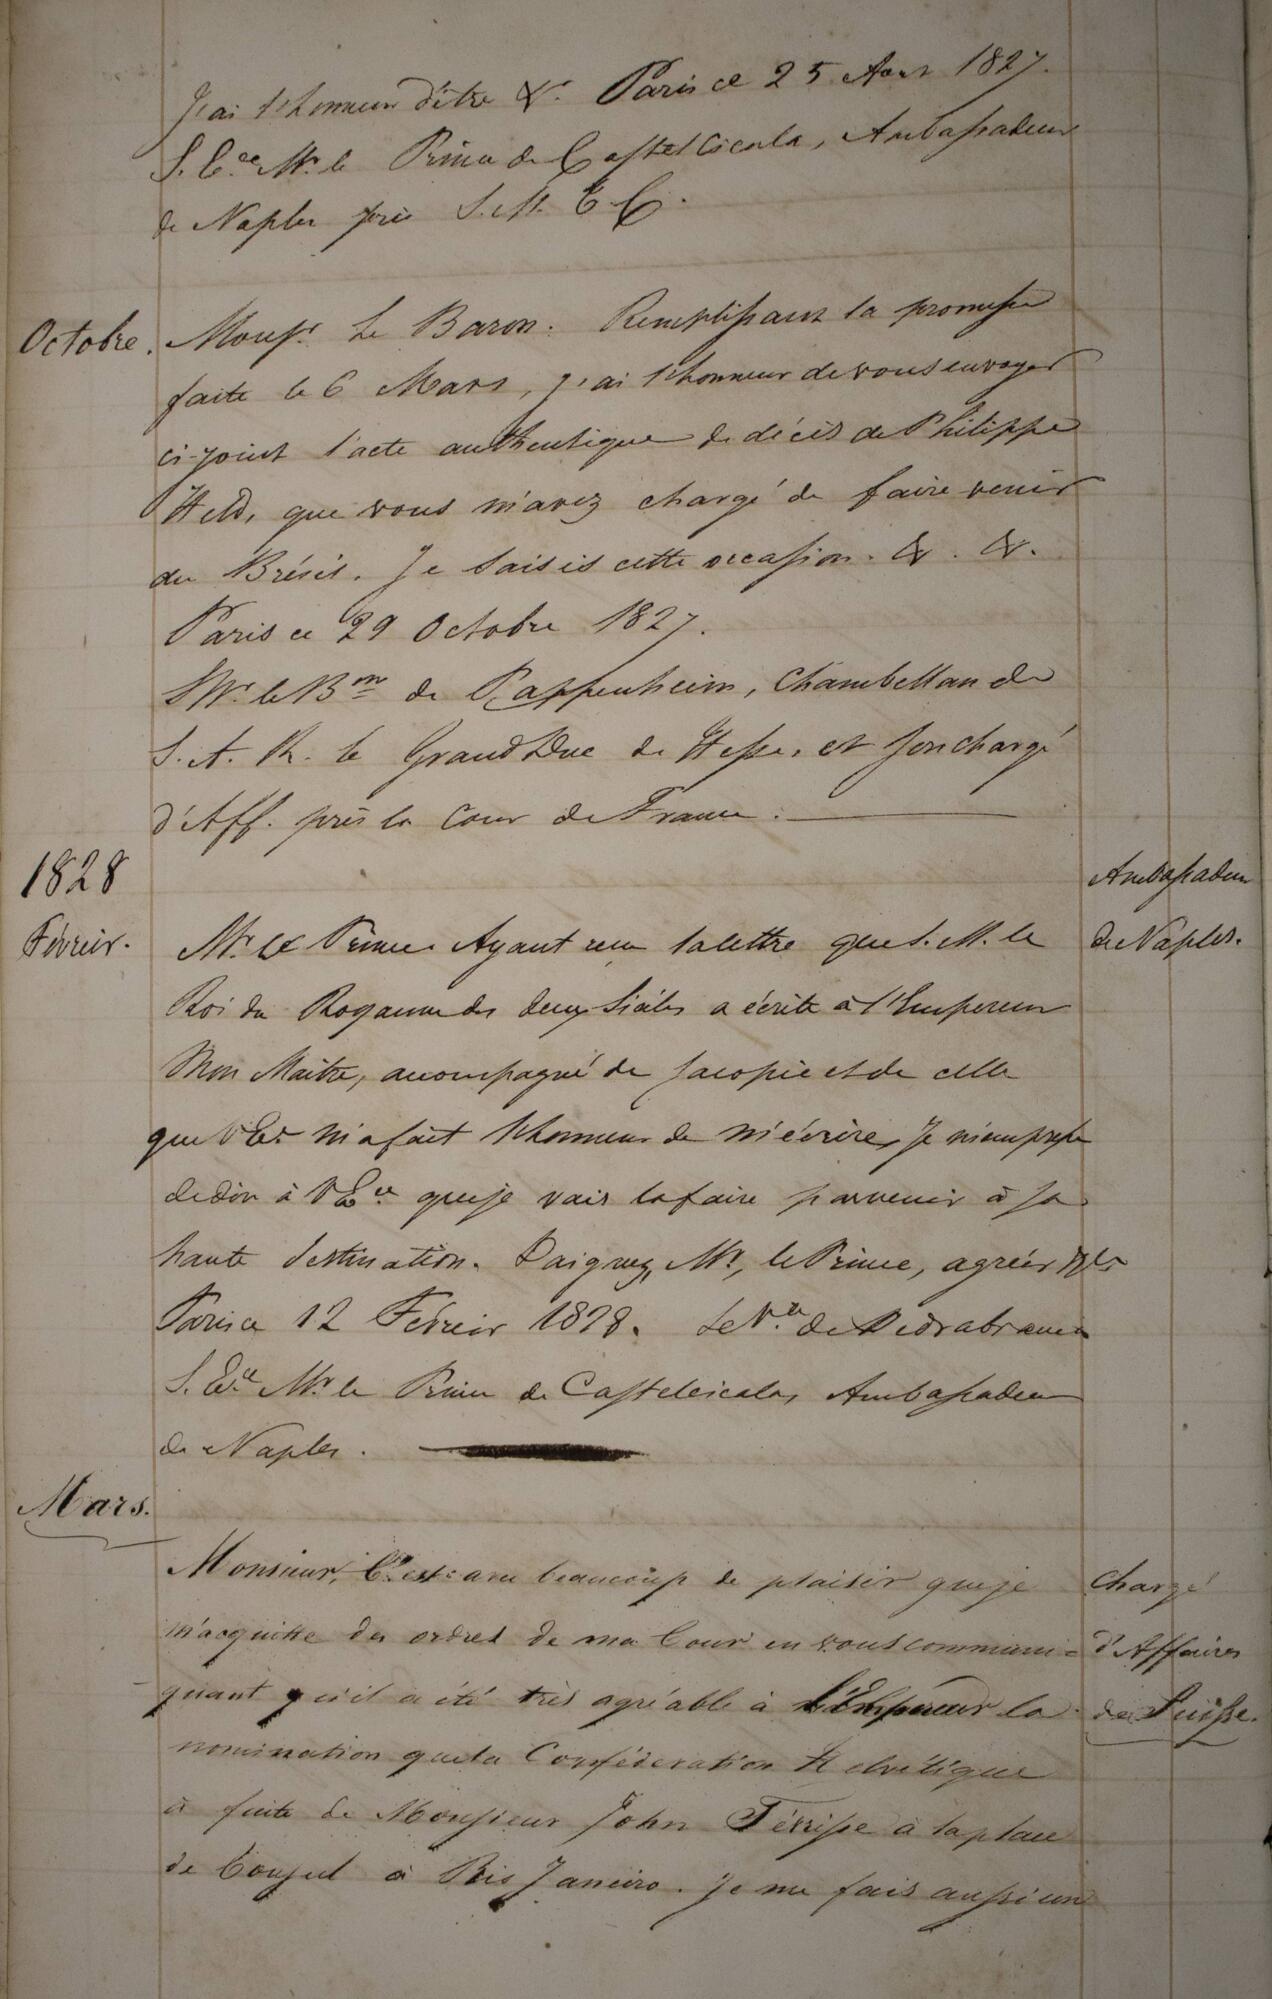 J'ai l'honneur d'être &. Paris ce 25 Aout 1827.
S. Ex.ce Mr. le Prince de Castelcicala, Ambassadeur
de Naples près S. M. T. C.
Octobre.
Monsr. Le Baron. Remplissant la promesse
faite le 6 Mars, j'ai l'honneur de vous envoyer
ci-joint l'acte authentique de décès de Philippe
Held, que vous m'avez chargé de faire venir
du Brésil. Je saisis cette occasion. &. &.
Paris ce 29 Octobre 1827.
Mr. le Bon de Pappenheim, Chambellan de
S. A. R. le Grand Duc de Hesse, et son chargé
d'Aff. près la Cour de France.
1828
Février.
Ambassadeur
de Naples.
Mr. le Prince Ayant reçu la lettre que S. M. le
Roi du Royaume des deux Siciles a écrite à l'Empereur
Mon Maître, accompagné de sa copie et de celle
que V. Ex. m'a fait l'honneur de m'écrire, Je m'empresse
de dire à V. Ex.ce que je vais la faire parvenir à sa
haute destination. Daignez, Mr. le Prince, agréer
Paris ce 12 Février 1828. Le V.te de Pedrabranca
S. Ex.ce Mr. le Prince de Castelcicala, Ambassadeur
de Naples.
Mars.
Chargé
d'Affaires
de Suisse.
Monsieur, C'est avec beaucoup de plaisir que je
m'acquitte des ordres de ma Cour en vous communi=
quant qu'il a été très agréable à l'Empereur la
nomination que la Confédération Helvétique
a faite de Monsieur John à la place
de Consul à Rio Janeiro. Je me fais aussi un